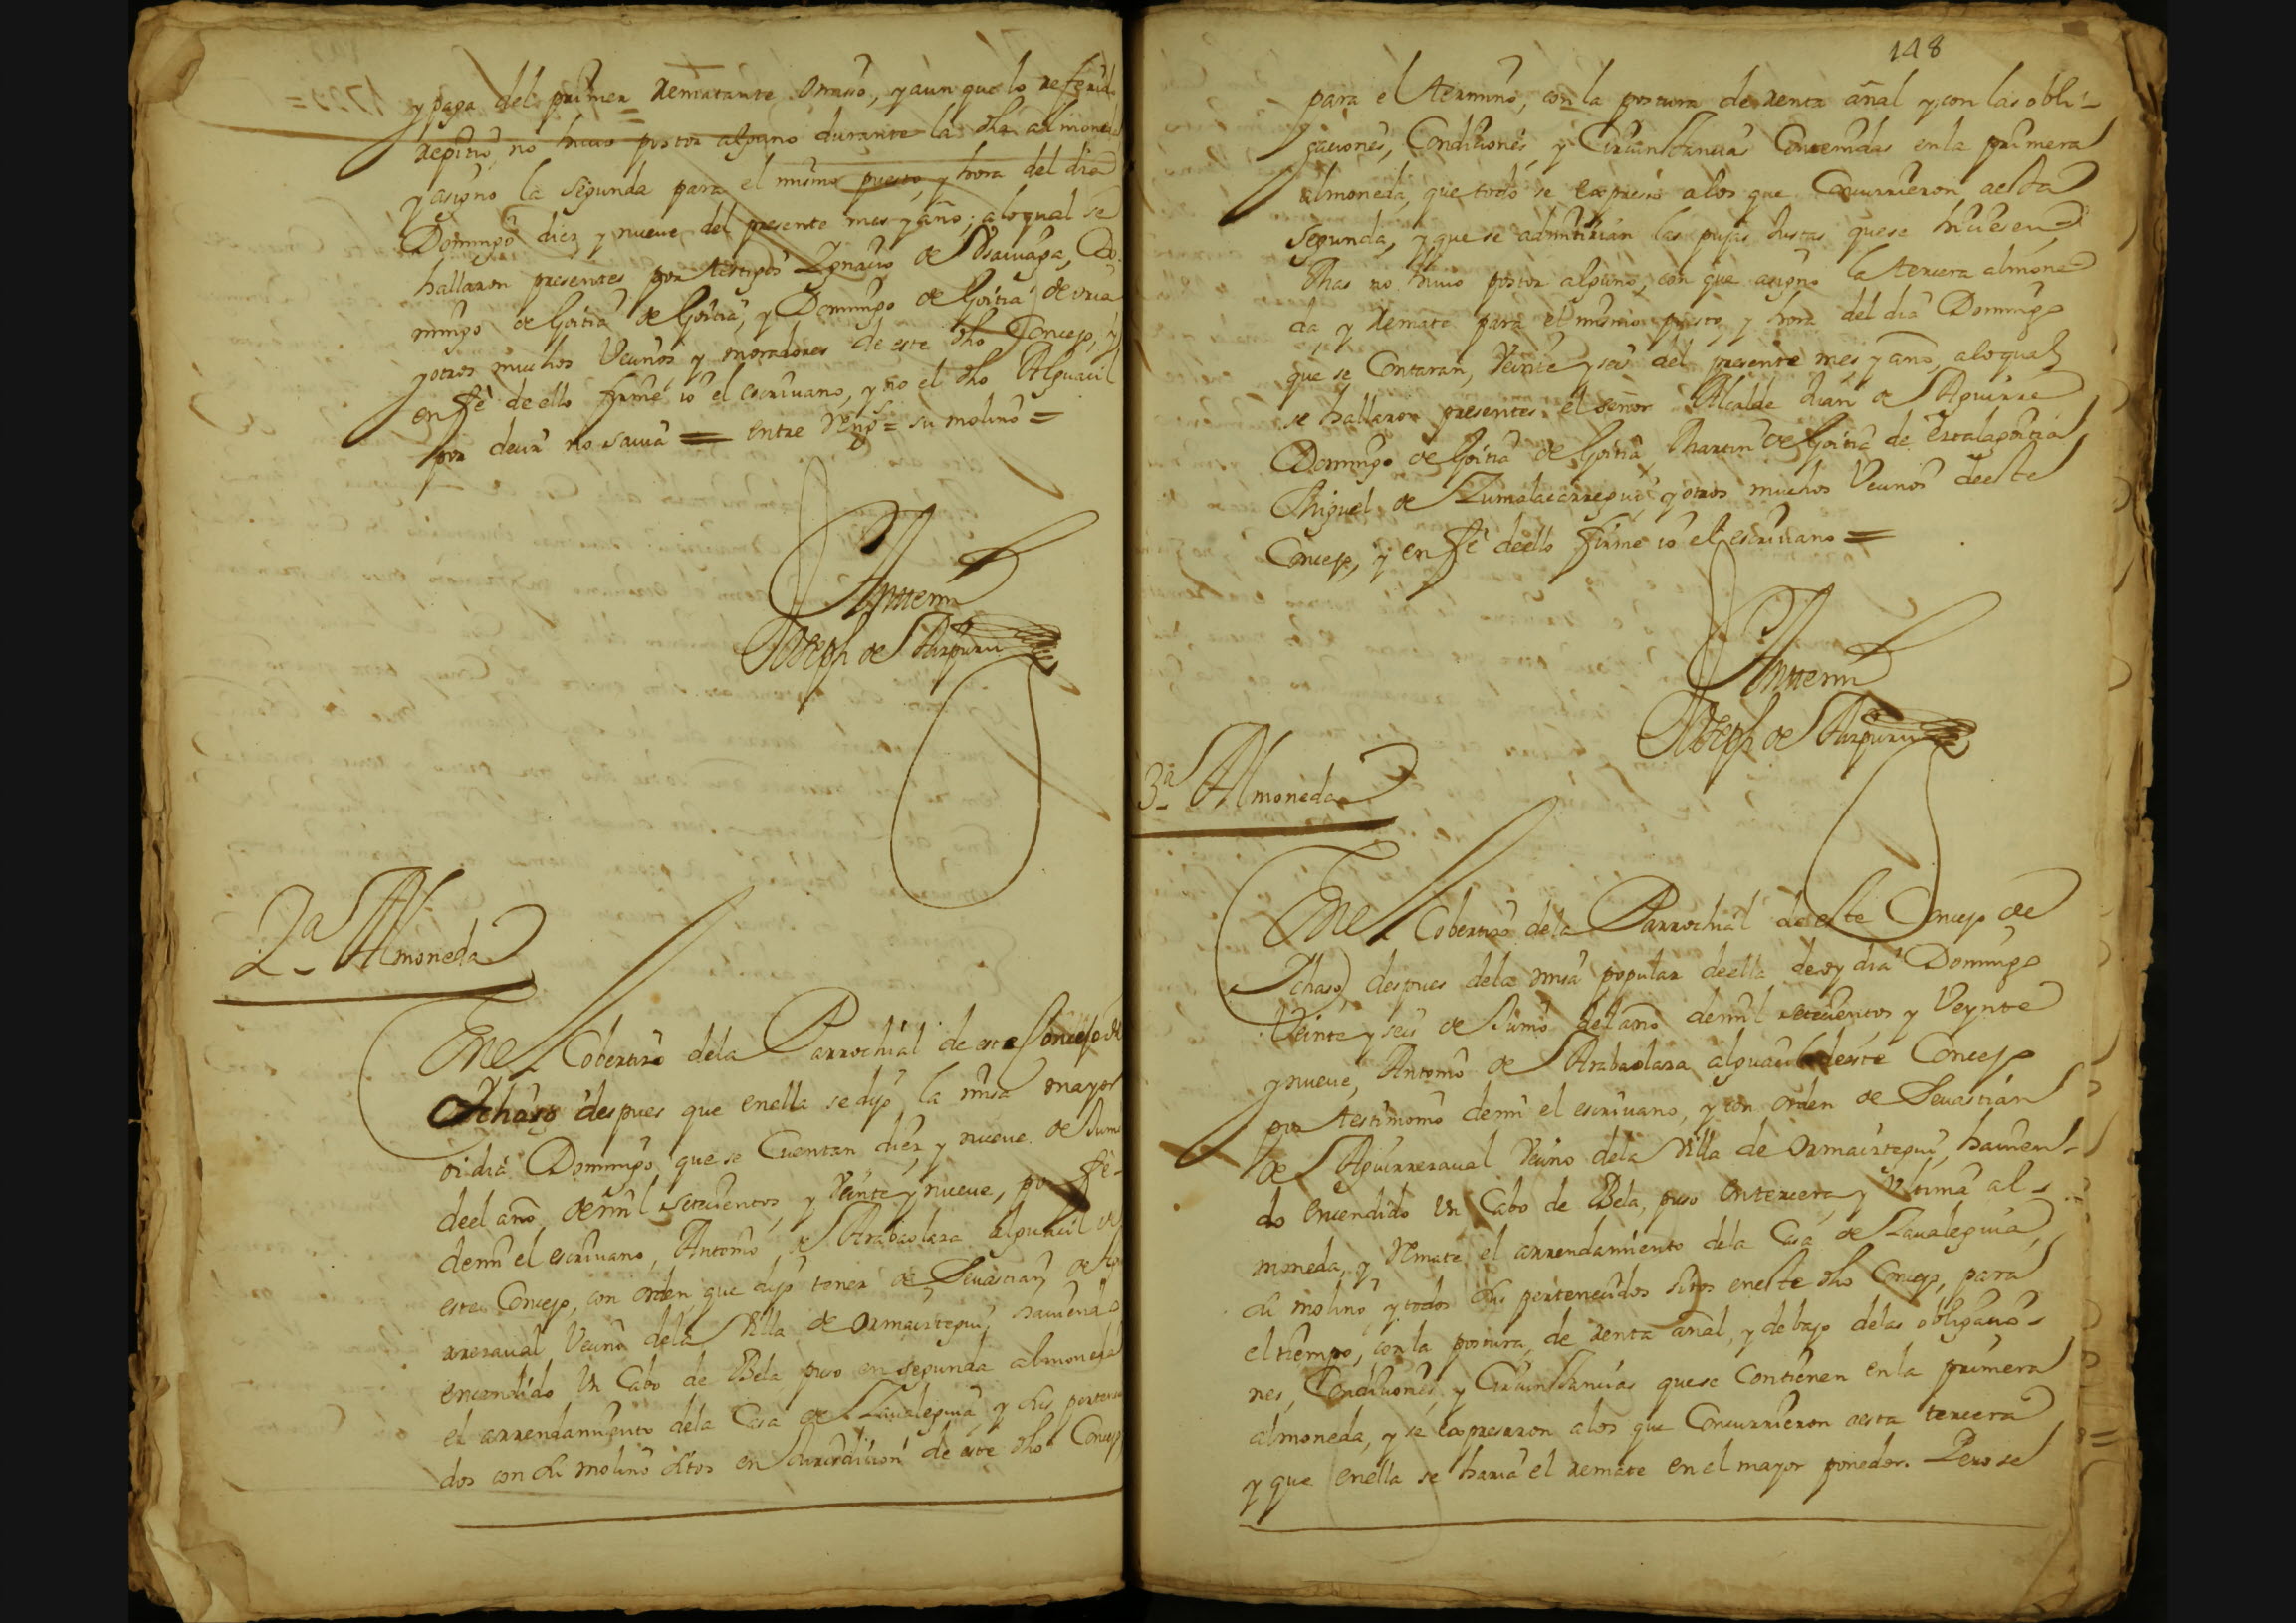 y paga del primer rematante omiso, y aunque lo referido
repitio no huuo postor alguno durante la dha almoneda
y asigno la segunda para el mismo puesto, y hora del dia
Domingo diez y nueue del presente mes y año; alo qual se
hallaron presentes por testigos Ygnacio de Ysauaga, Do-
mingo de Goitia de Goitia, y Domingo de Goitia de vria
y otros muchos Vecinos y moradores de este dho Concejo, y
en fè de ello firmè io el escriuano, y no el dho Alguacil
por decir no sauia = entre Rengs = su molino =
Antemi
Joseph de Aizpuru
2a Almoneda
En el Cobertizo dela Parrochial de este Concejo de
Ychaso despues que enella se dijo la misa mayor
oi dia Domingo que se Cuentan diez y nueue de Junio
deel año de mil setecientos y Veinte y nueue, por fè
demi el escriuano, Antonio de Arabaolaza alguacil de
este Concejo, con orden que dijo tener de Seuastian de Agui
rrezaual Vecino dela Villa de Ormaiztegui, hauiendo
encendido Vn Cabo de Bela, puso en segunda almoneda
el arrendamiento dela Casa de Zaualeguia y sus perteneci
dos con su molino sitos en Jurisdicion de este dho Concejo
148
para el termino, con la postura de renta añal y con las obli-
gaciones, Condiciones, y Circunstancias Contenidas enla primera
almoneda, que todo se expresò alos que Concurrieron aesta
segunda, y que se admitirian las pujas Justas que se hiciesen
Mas no huuo postor alguno, con que asigno la tercera almone
da y remate para el mismo puesto, y hora del dia Domingo
que se Contaràn, Veinte y seis del presente mes y año, alo qual
se hallaron presentes el señor Alcalde Juan de Aguirre
Domingo de Goitia de Goitia, Martin de Goitia de
Miguel de Zumalacarregui, y otros muchos Vecinos deeste
Concejo, y en fè deello firmè io el escriuano =
Antemi
Joseph de Aizpuru
3a Almoneda
En el Cobertizo dela Parrochial de este Concejo de
Ychaso, despues dela misa popular deella de oy dia Domingo
Veinte y seis de Junio del año demil setecientos y Veynte
y nueue, Antonio de Arabaolaza alguacil deeste Concejo
por testimonio demi el escriuano, y con orden de Seuastian
de Aguirrezaual Vecino dela Villa de Ormaiztegui, hauien-
do encendido Vn Cabo de Bela, puso en tercera, y Vltima al-
moneda, y Remate el arrendamiento dela Casa de Zaualeguia,
su molino, y todos sus pertenecidos sitos eneste dho Concejo, para
el tiempo, con la postura de renta añal, y debajo delas obligacio-
nes, Condiciones, y Circunstancias que se Contienen enla primera
almoneda, y se expresaron alos que Concurrieron aesta tercera
y que enella se haria el remate en el mayor ponedor. Pero se